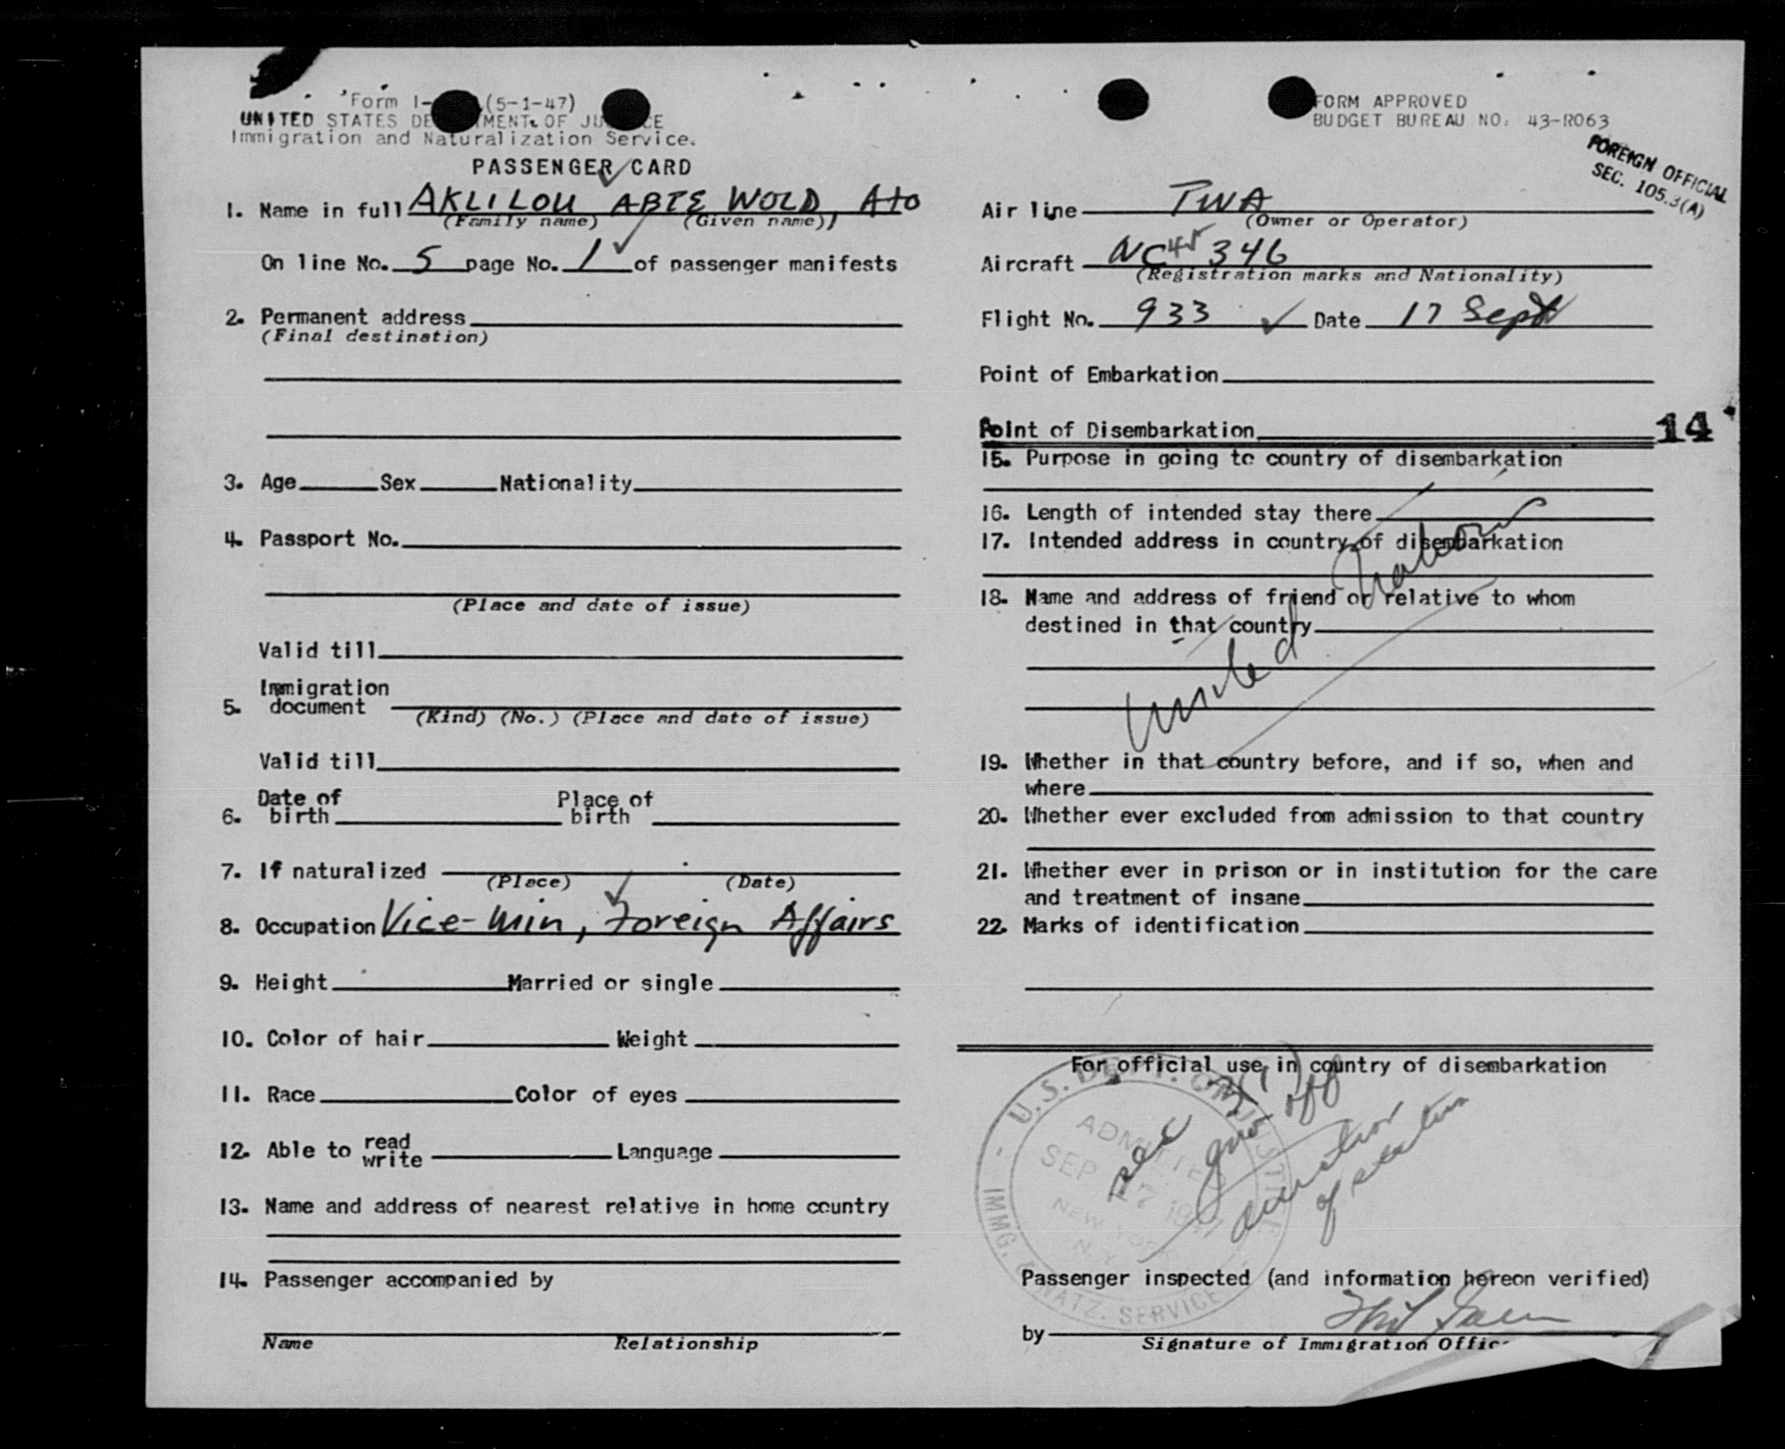 Form I- (5-1-47)
UNITED STATES DE MENT OF JU CE
Immigration and Naturalization Service.
PASSENGER CARD
FORM APPROVED
BUDGET BUREAU NO. 43-R063
FOREIGN OFFICIAL
SEC. 105.3(A)
1. Name in full AKLILOU ABTE WOLD Ato
(Family name) (Given name)
On line No. 5 page No. 1 of passenger manifests
2. Permanent address
(Final destination)
3. Age Sex Nationality
4. Passport No.
(Place and date of issue)
Valid till
Immigration
5. document
(Kind) (No.) (Place and date of issue)
Valid till
Date of Place of
6. birth birth
7. If naturalized
(Place) (Date)
8. Occupation Vice-Min, Foreign Affairs
9. Height Married or single
10. Color of hair Weight
11. Race Color of eyes
12. Able to read write Language
13. Name and address of nearest relative in home country
14. Passenger accompanied by
Name Relationship
Air line TWA
(Owner or Operator)
Aircraft NC 45 346
(Registration marks and Nationality)
Flight No. 933 Date 17 Sept
Point of Embarkation
Point of Disembarkation
14
15. Purpose in going to country of disembarkation
16. Length of intended stay there
17. Intended address in country of disembarkation
18. Name and address of friend or relative to whom
destined in that country
United Nations
19. Whether in that country before, and if so, when and
where
20. Whether ever excluded from admission to that country
21. Whether ever in prison or in institution for the care
and treatment of insane
22. Marks of identification
For official use in country of disembarkation
U.S. DEPT. OF JUSTICE
ADMITTED
SEP 17 1947
NEW YORK
N.Y.
IMMG. & NATZ. SERVICE
duration
of status
Passenger inspected (and information hereon verified)
by
Signature of Immigration Offic